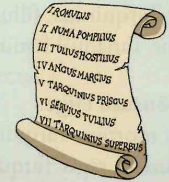 I ROMULUS
II NUMA POMPILIUS
III TULIUS HOSTILIUS
IV ANGUS MARCIUS
V TARQUINIUS PRISCUS
VI SERVIUS TULLIUS
VII TARQUINIUS SUPERBUS